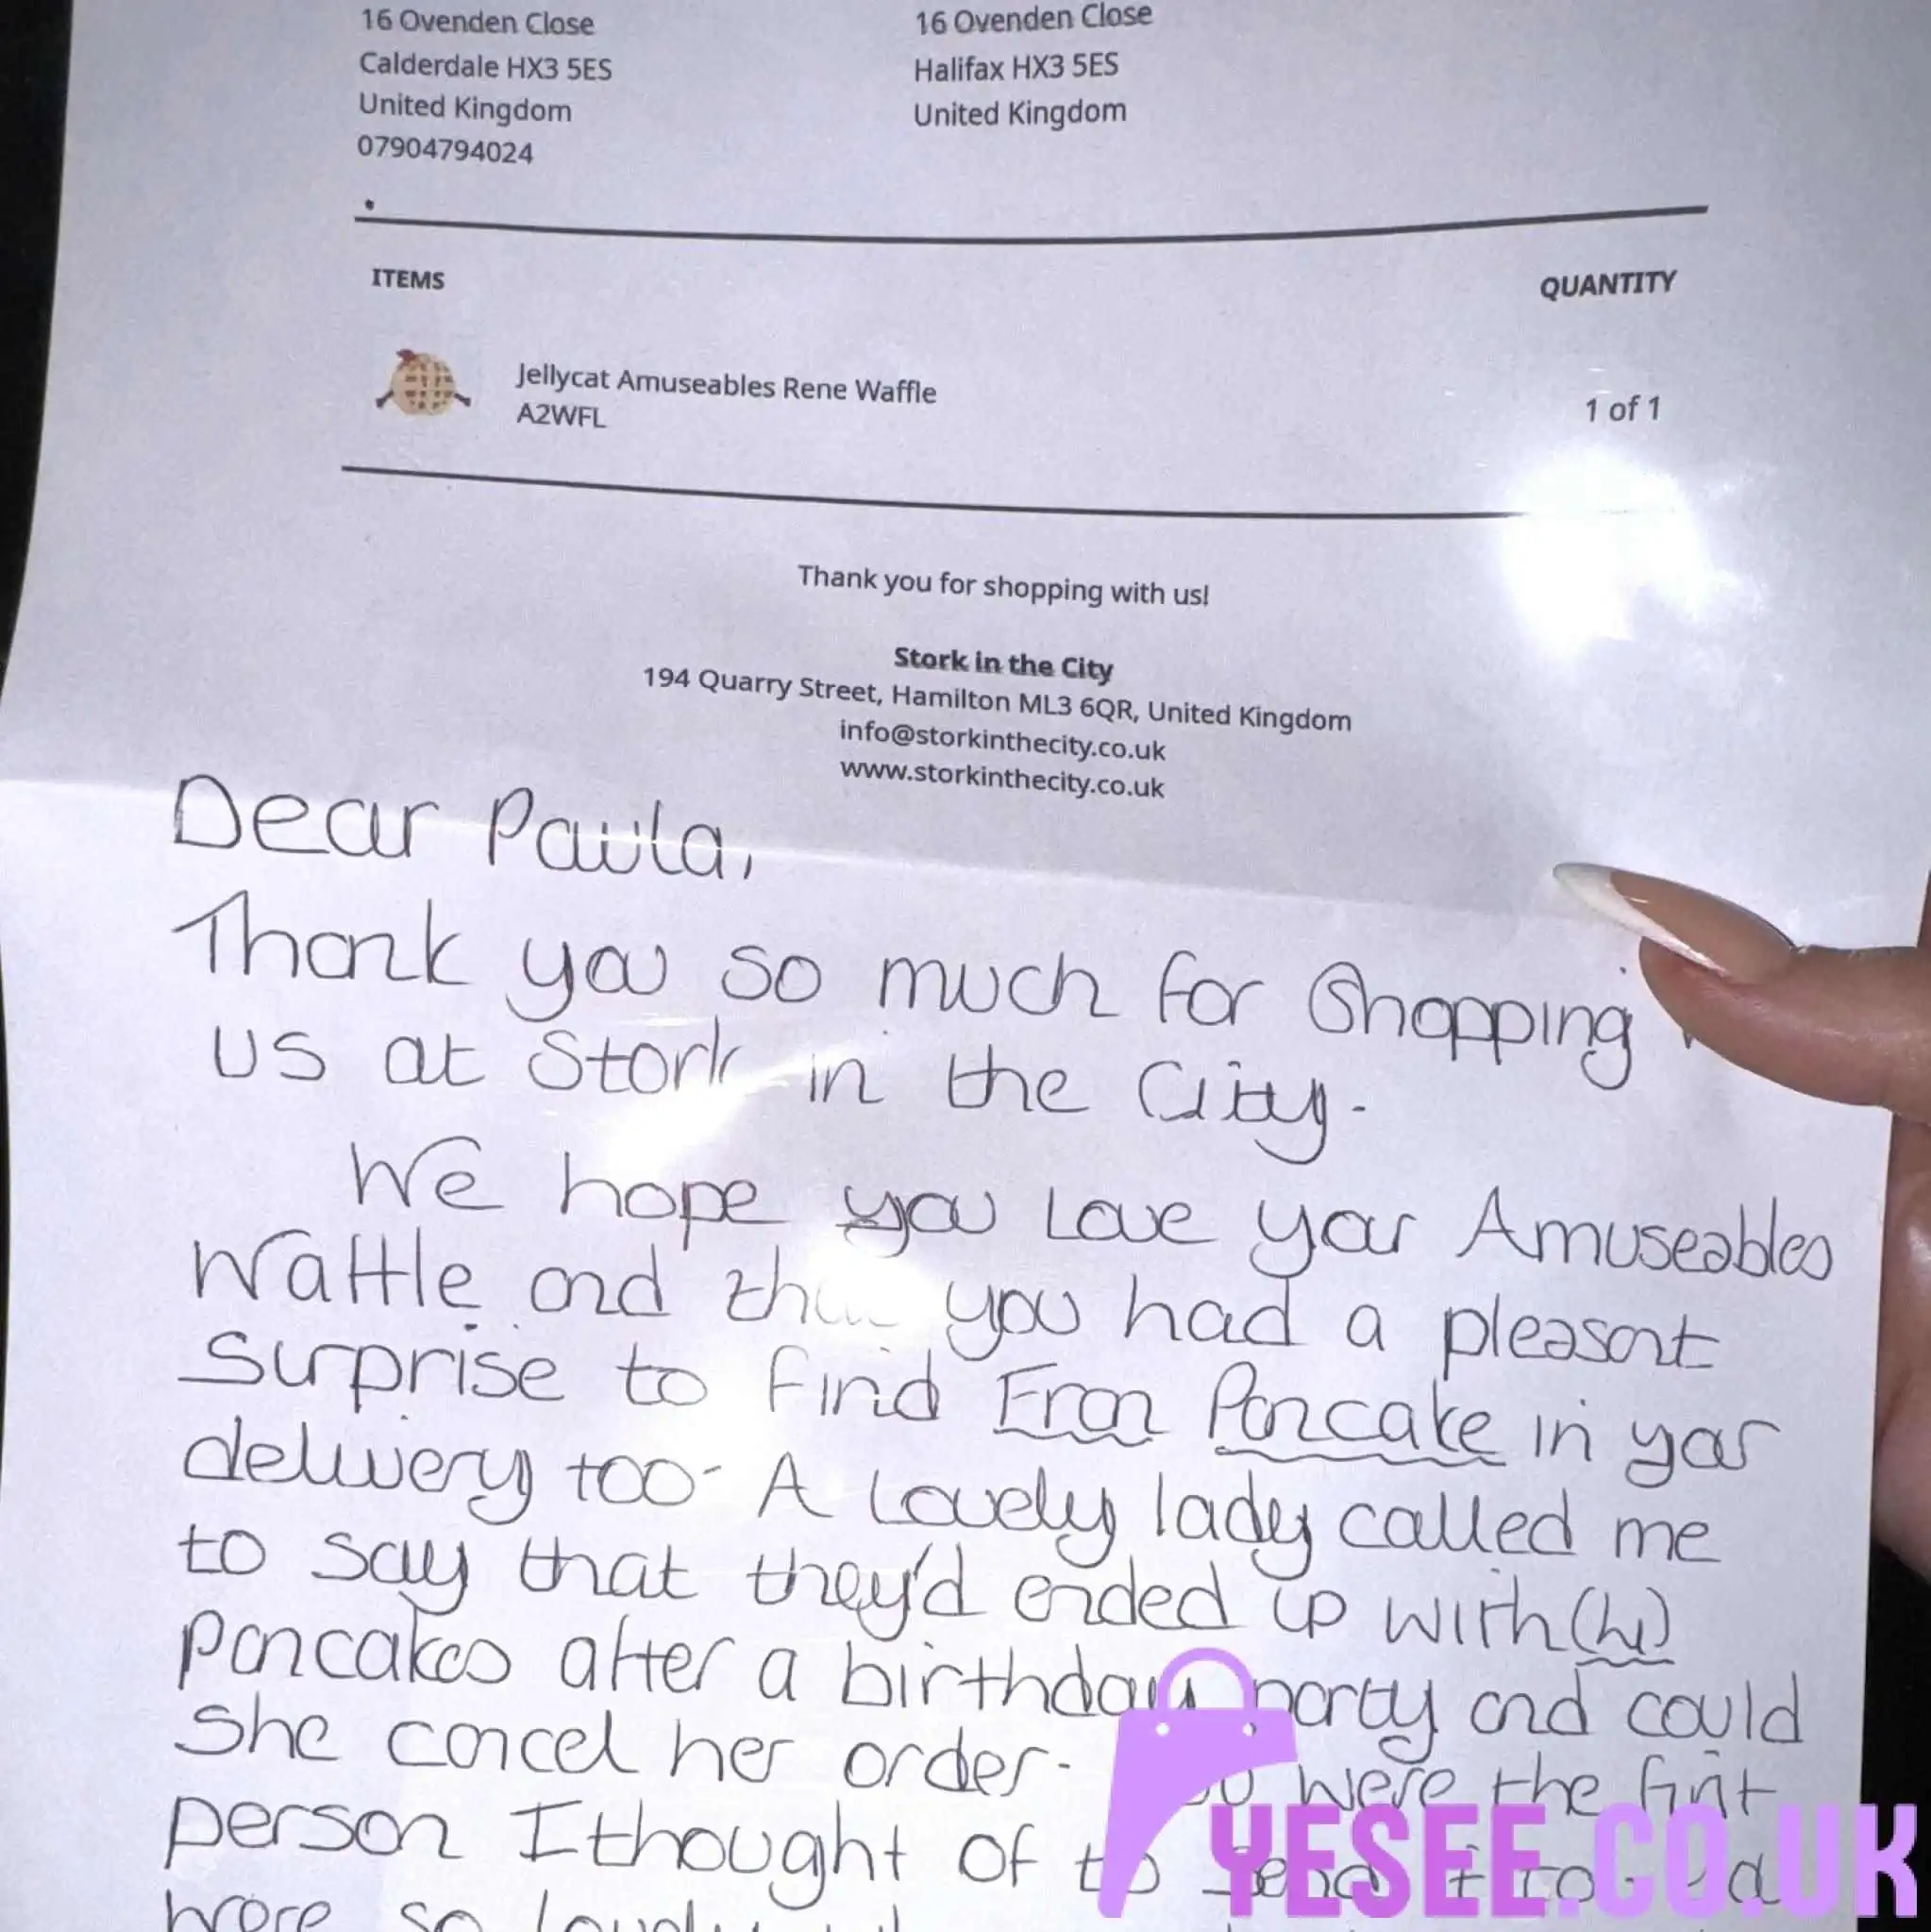 16 Ovenden Close
Calderdale HX3 5ES
United Kingdom
07904794024
16 Ovenden Close
Halifax HX3 5ES
United Kingdom
ITEMS QUANTITY
Jellycat Amuseables Rene Waffle
A2WFL
1 of 1
Thank you for shopping with us!
Stork in the City
194 Quarry Street, Hamilton ML3 6QR, United Kingdom
info@storkinthecity.co.uk
www.storkinthecity.co.uk
Dear Paula,
Thank you so much for Shopping
us at Stork in the City.
We hope you Love your Amuseables
Waffle and you had a pleasant
surprise to find Fran Pancake in your
delivery too. A Lovely lady called me
to say that they'd ended up with
pancakes after a birthday party and could
she cancel her order. were the first
person I thought of to
so
YESEE.CO.UK